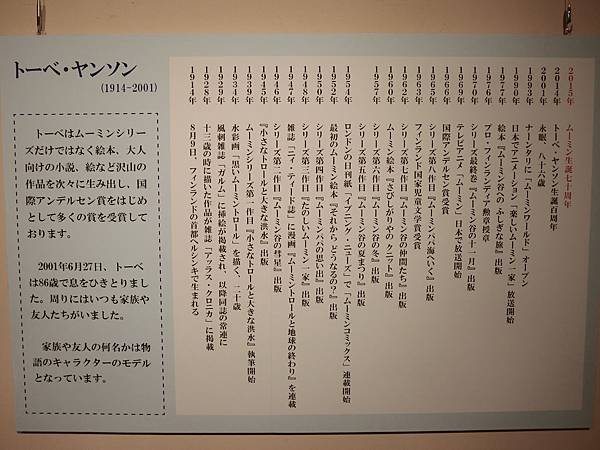 トーベ・ヤンソン
(1914-2001)
トーベはムーミンシリー
ズだけではなく絵本、大人
向けの小説、絵など沢山の
作品を次々に生み出し、国
際アンデルセン賞をはじめ
として多くの賞を受賞して
おります。
2001年6月27日、トーベ
は86歳で息をひきとりまし
た。周りにはいつも家族や
友人たちがいました。
家族や友人の何名かは物
語のキャラクターのモデル
となっています。
2015年 ムーミン生誕七十周年
2014年 トーベ・ヤンソン生誕百周年
2001年 永眠 八十六歳
1993年 ナーンタリに「ムーミンワールド」オープン
日本でアニメーション「楽しいムーミン一家」放送開始
1977年 絵本『ムーミン谷へのふしぎな旅』出版
1976年 プロ・フィンランディア勲章授章
1970年 シリーズ最終巻『ムーミン谷の十一月』出版
1969年 テレビアニメ「ムーミン」日本で放送開始
1966年 国際アンデルセン賞受賞
1965年 シリーズ第八作目『ムーミンパパ海へいく』出版
1963年 フィンランド国家児童文学賞受賞
1962年 シリーズ第七作目『ムーミン谷の仲間たち』出版
1960年 ムーミン絵本『さびしがりやの クニット』出版
1957年 シリーズ第六作目『ムーミン谷の冬』出版
シリーズ第五作目『ムーミン谷の夏まつり』出版
1954年 ロンドンの日刊紙「イブニング・ニューズ」で「ムーミンコミックス」連載開始
1952年 最初のムーミン絵本『それから どうなるの?』出版
1950年 シリーズ第四作目『ムーミンパパの思い出』出版
1948年 シリーズ第三作目『たのしいムーミン一家』出版
1947年 雑誌「ニィ・ティード誌」に漫画『ムーミントロールと地球の終わり』を連載
1946年 シリーズ第二作目『ムーミン谷の彗星』出版
1945年 『小さなトロールと大きな洪水』出版
1939年 ムーミンシリーズ第一作目『小さなトロールと大きな洪水』執筆開始
1934年 水彩画「黒いムーミントロール」を描く、二十歳
1929年 風刺雑誌「ガルム」に挿絵が掲載され、以降同誌の常連に
1928年 十三歳の時に描いた作品が雑誌「アッラス・クロニカ」に掲載
1914年 8月9日、フィンランドの首都ヘルシンキで生まれる